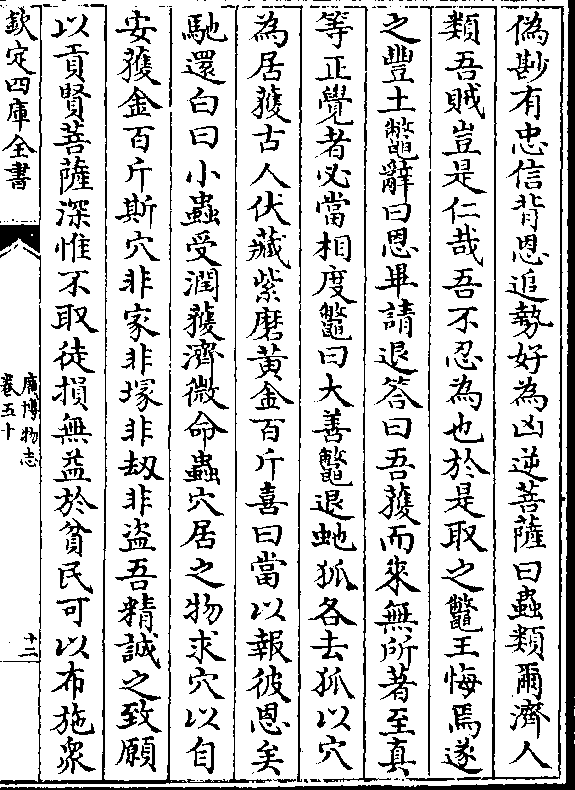 偽尠有忠信背恩追勢好為凶逆菩薩曰蟲類爾濟人
類吾賊豈是仁哉吾不忍為也於是取之鼈王悔焉遂
之豐土鼈辭曰恩畢請退答曰吾獲而來無所著至真
等正覺者必當相度鼈曰大善鼈退虵狐各去狐以穴
為居獲古人伏藏紫磨黄金百斤喜曰當以報彼恩矣
馳還白曰小蟲受潤獲濟微命蟲穴居之物求穴以自
安獲金百斤斯穴非家非塚非刼非盜吾精誠之致願
以貢賢菩薩深惟不取徒損無益於貧民可以布施衆
欽定四庫全書
廣博物志
卷五十
十二